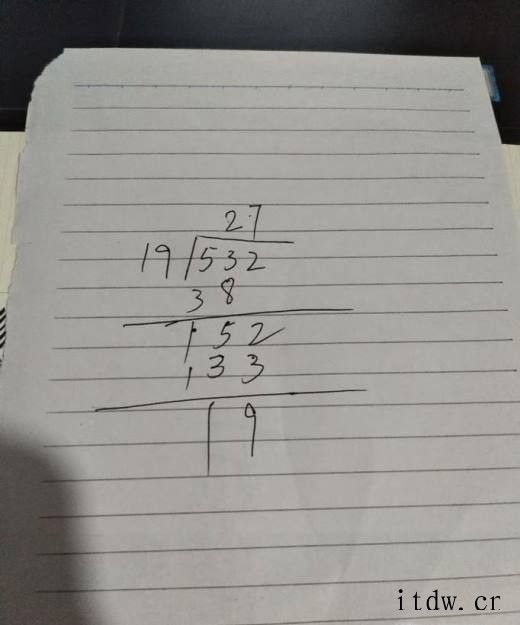 27
19 532
38
152
133
19
itdw.cr